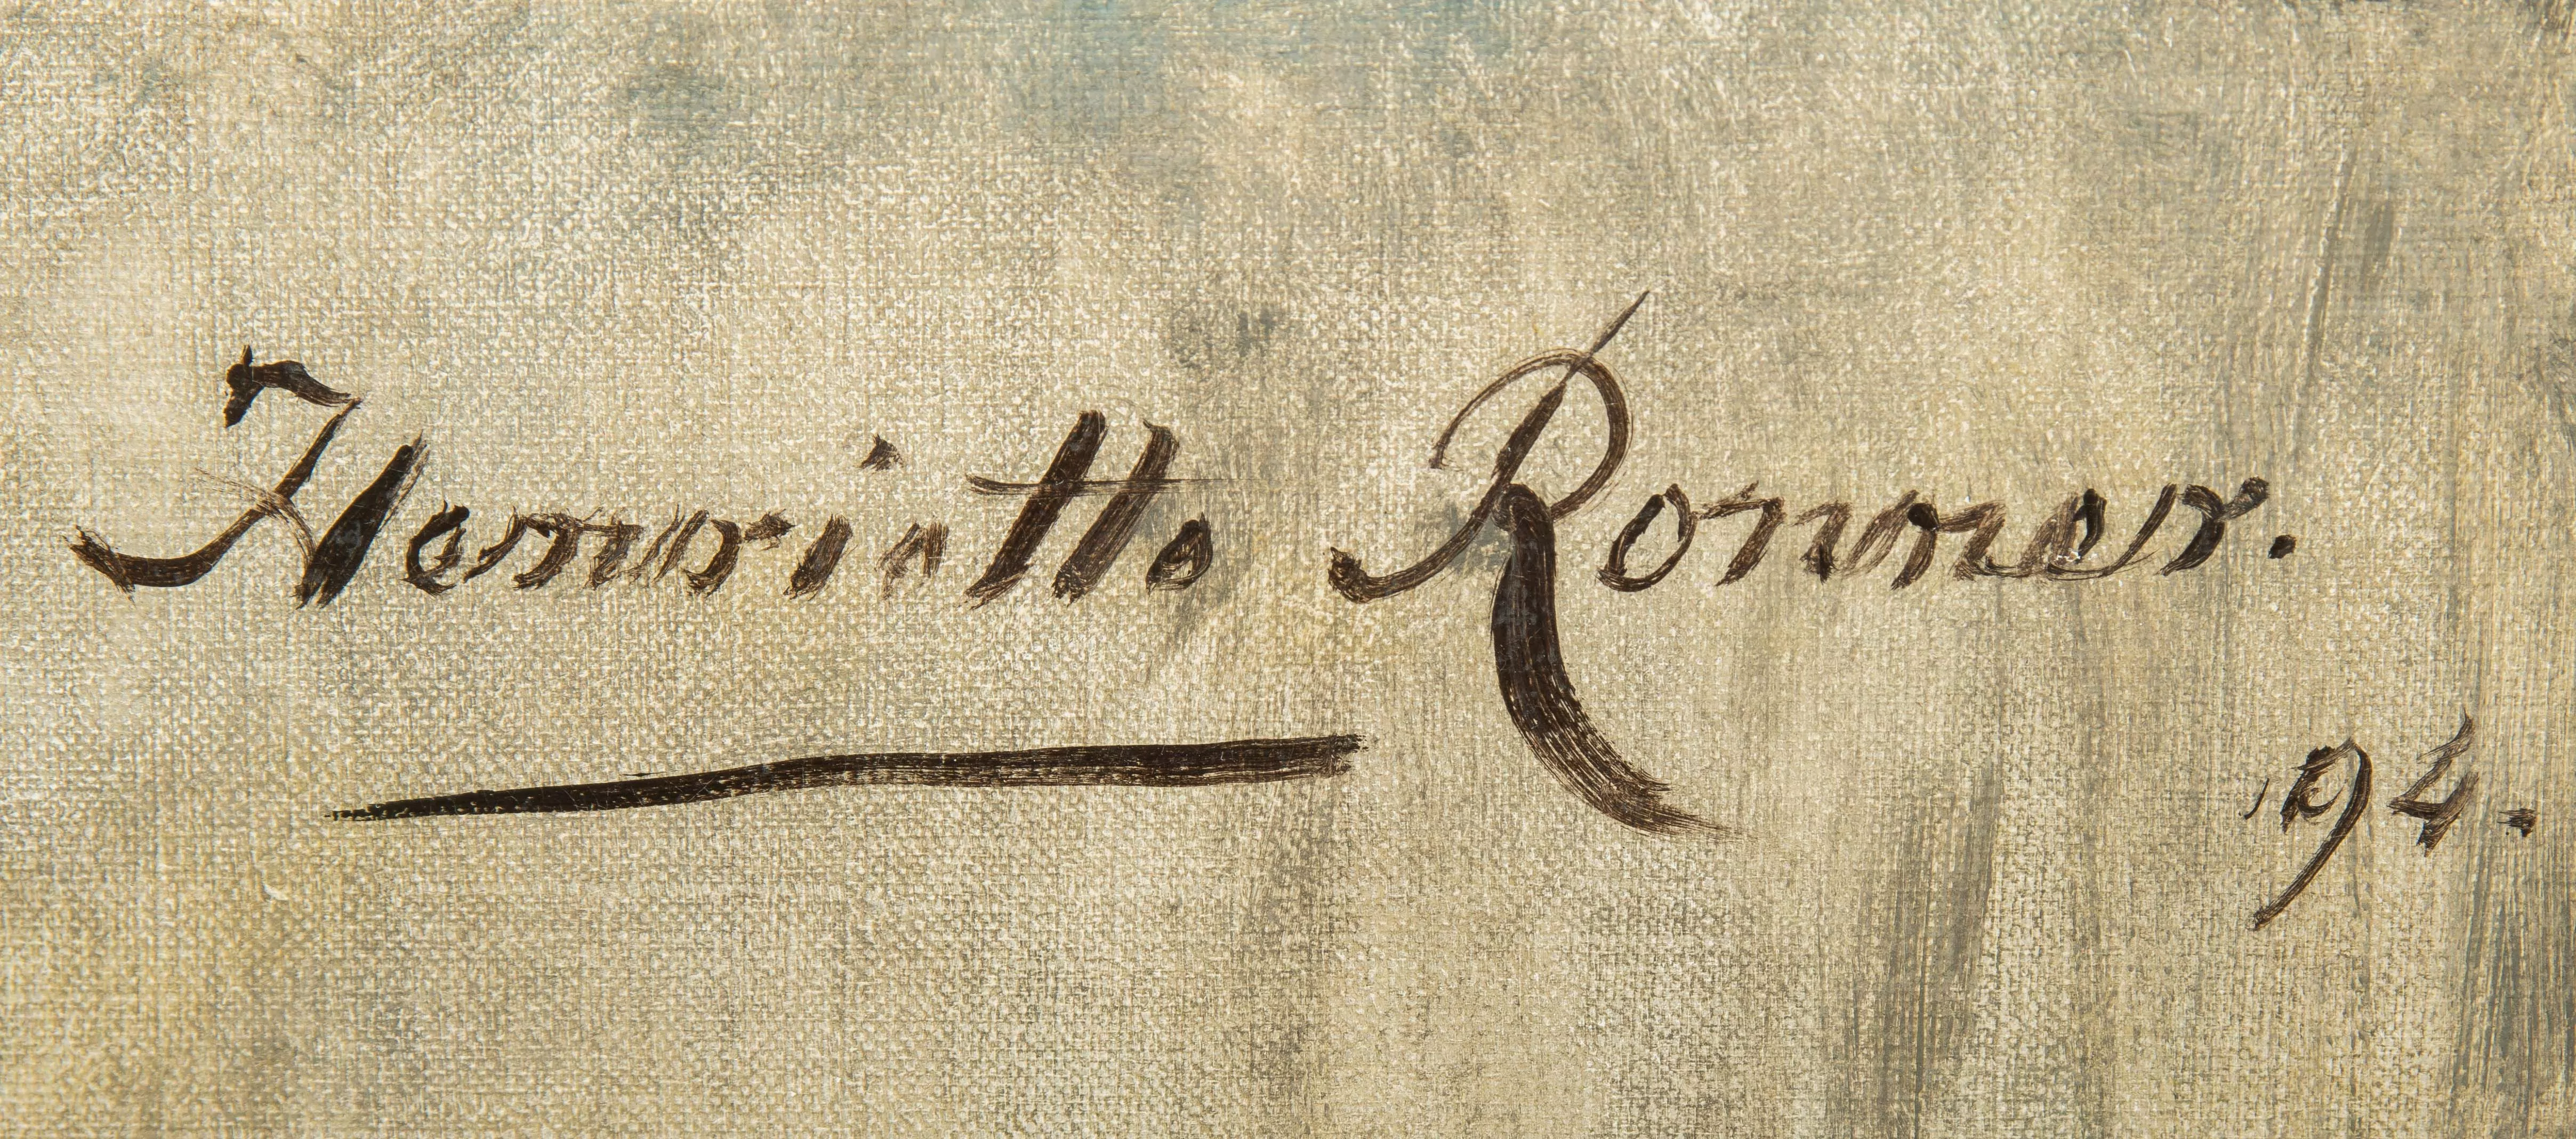 Henriette Ronner.
94.